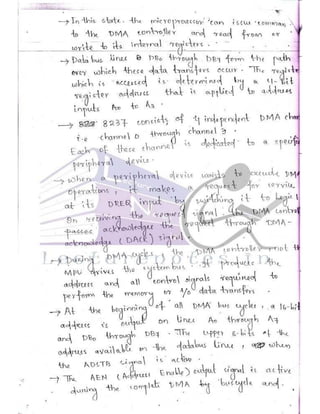 → In this state the microprocessor can issue comman
to the DMA controller and read from or
write to its internal registers.
→ Data bus lines DB0 through DB7 form the path
over which these data transfers occur. The registe
which is accessed is determined by a 4-bit
register address that is applied to address
inputs A0 to A3.
→ 8237 consists of 4 independent DMA chan
i.e channel 0 through channel 3.
Each of these channel is dedicated to a specifi
peripheral device.
→ When a peripheral device wants to execute DMA
operations, it makes a request for service
at its DREQ input by switching it to Logic 1
On receiving the request signal the DMA control
passes acknowledge the request through DMA-
acknowledge (DACK) signal.
→ During DMA cycle the DMA controller not th
MPU drives the system bus. It produces the
address and all control signals required to
perform the memory or I/O data transfers.
→ At the beginning of all DMA bus cycles, a 16-bit
address is output on lines A0 through A7
and DB0 through DB7. The upper 8-bits of the
address available on the databus lines, when
the ADSTB signal is active.
→ The AEN (Address Enable) output signal is active
during the complete DMA bus cycle and.